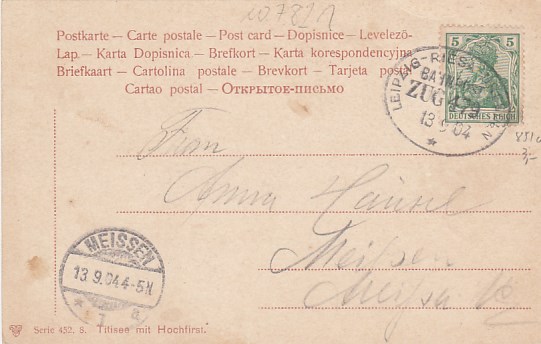 10 78/1
Postkarte — Carte postale — Post card — Dopisnice — Levelező-
Lap. — Karta Dopisnica — Brefkort — Karta korespondencyjna
Briefkaart — Cartolina postale — Brevkort — Tarjeta postal
Cartao postal — Открытое-письмо
5 5
DEUTSCHES REICH
LEIPZIG-RIESA-
BAHNPOST
ZUG
13 9 04
Anna Hänsel
Meißen
MEISSEN
13.9.04.4-5N
Serie 452. 8. Titisee mit Hochfirst.